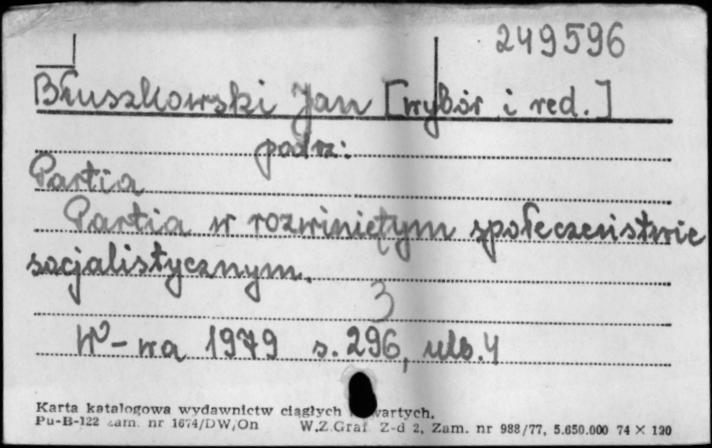 249596
Błuszkowski Jan [wybór i red.]
patrz:
Partia
Partia w rozwiniętym społeczeństwie
socjalistycznym.
3
W-wa 1979 s. 296, ulb. 4
Karta katalogowa wydawnictw ciągłych
Pu-B-122 zam. nr 1674/DW/On W.Z.Graf. Z-d 2, Zam. nr 988/77, 5.650.000 74 × 120